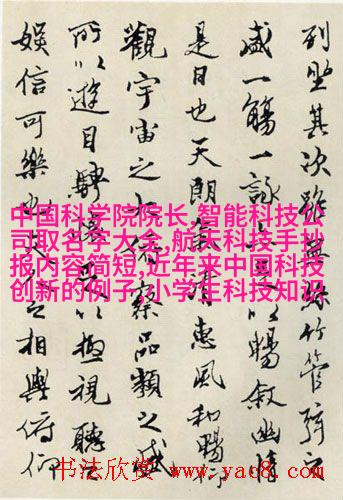 列坐其次雖無絲竹管弦之
盛一觴一詠亦足以暢敘幽情
是日也天朗氣清惠風和暢仰
觀宇宙之大俯察品類之盛
所以遊目騁懷足以極視聽之
娛信可樂也夫人之相與俯仰
中国科学院院长,智能科技公
司取名字大全,航天科技手抄
报内容简短,近年来中国科技
创新的例子,小学生科技知识
书法欣赏 www.yac8.com